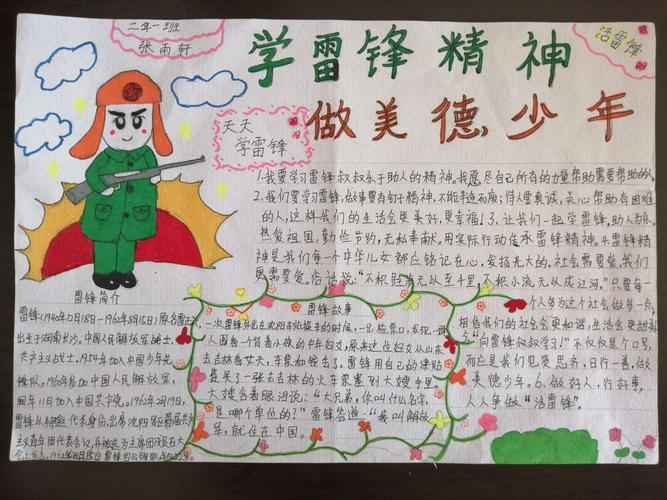 二年一班
张雨轩
学雷锋精神
做美德少年
活雷锋
天天
学雷锋
1.我要学习雷锋叔叔乐于助人的精神,我愿尽自己所有的力量帮助需要帮助的人
2.我们要学习雷锋,做事要有钉子精神,不能半途而废;待人要真诚,关心帮助有困难
的人,这样我们的生活会更美好,更幸福!3、让我们一起学雷锋,助人为乐,
热爱祖国,勤俭节约,无私奉献,用实际行动传承雷锋精神。4.雷锋精
神是我们每一个中华儿女都应铭记在心,发扬光大的。社会需要爱,我们
更需要爱,俗话说:"不积跬步无以至千里,不积小流无以成江河。"只要每一
个人多为这个社会做多一点,
相信我们的社会会更和谐,生活会更甜美
"向雷锋叔叔学习!"不仅仅是个口号,
而应是我们见贤思齐,日行一善,做
美德少年。6.做好人,行好事,
人人争做"活雷锋"。
雷锋简介
雷锋(1940年12月18日-1962年8月15日)原名雷正兴
出生于湖南长沙,中国人民解放军战士,
共产主义战士。1954年加入中国少年先
锋队,1960年参加中国人民解放军,
同年11月加入中国共产党。1962年2月19日,
雷锋以特邀代表身份,出席沈阳军区首届共产
主义青年团代表会议,并被选为主席团成员在大
会上发言。1962年8月15日雷锋因公殉职,年仅22岁。
雷锋故事
一次雷锋外出在沈阳车站换车的时候,一出检票口,发现一群
人围着一个背着小孩的中年妇女,原来这位妇女从山东
去吉林看丈夫,车票和钱丢了。雷锋用自己的津贴
费买了一张去吉林的火车票塞到大嫂手里,
大嫂含着眼泪说:"大兄弟,你叫什么名字,
是哪个单位的?"雷锋笑道:"我叫解放
军,就住在中国。